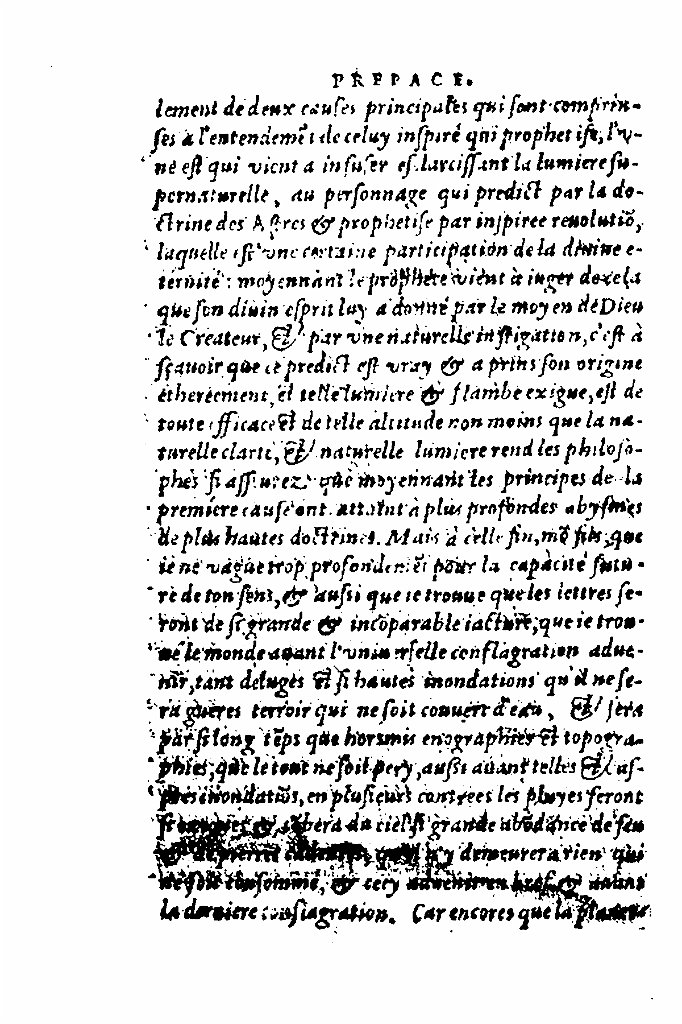 PREFACE.
lement de deux causes principales qui sont comprin-
ses à l'entendemẽt de celuy inspiré qui prophetise, l'v-
ne est qui vient a infuser esclarcissant la lumiere su-
pernaturelle, au personnage qui predict par la do-
ctrine des Astres & prophetise par inspiree reuolutiõ,
laquelle est vne certaine participation de la diuine e-
ternité: moyennant le prophete vient à iuger de cela
que son diuin esprit luy a donné par le moyen de Dieu
le Createur, & par vne naturelle instigation, c'est à
sçauoir que ce predict est vray & a prins son origine
ethereement, et telle lumiere & flambe exigue, est de
toute efficace et de telle altitude non moins que la na-
turelle clarté, & naturelle lumiere rend les philoso-
phes si assurez que moyennant les principes de la
premiere cause ont attaint à plus profondes abysmes
de plus hautes doctrines. Mais à celle fin, mõ fils, que
ie ne vague trop profondemẽt pour la capacité futu-
re de ton sens, & aussi que ie trouue que les lettres se-
ront de si grande & incõparable iacture, que ie trou-
ue le monde auant l'vniuerselle conflagration adue-
nir, tant deluges et si hautes inondations qu'il ne se-
ra gueres terroir qui ne soit couuert d'eau, & sera
par si long tẽps que horsmis enographies et topogra-
phies, que le tout ne soit pery, aussi auant telles & a-
pres inondatiõs, en plusieurs contrees les pluyes seront
si & tõbera du ciel si grande abõdance de feu
& de pierres qu'il n'y demeurera rien qui
ne soit consommé, & cecy aduenir en bref & auant
la derniere conflagration. Car encores que la planette